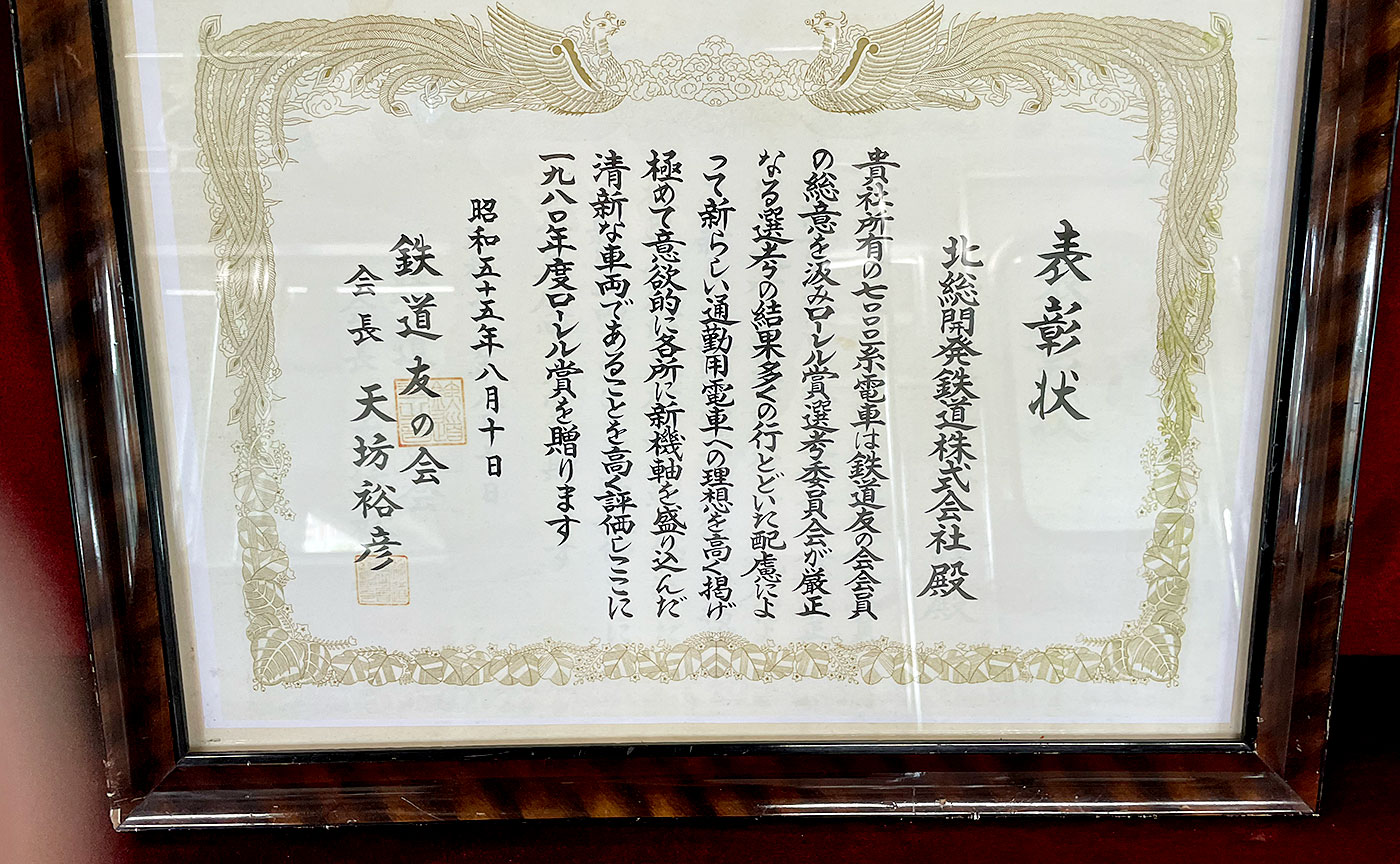 表彰状
北総開発鉄道株式会社殿
貴社所有の七〇〇〇系電車は鉄道友の会会員
の総意を汲みローレル賞選考委員会が厳正
なる選考の結果多くの行とどいた配慮によ
って新らしい通勤用電車への理想を高く掲げ
極めて意欲的に各所に新機軸を盛り込んだ
清新な車両であることを高く評価しここに
一九八〇年度ローレル賞を贈ります
昭和五十五年八月十日
鉄道友の会
会長 天坊裕彦